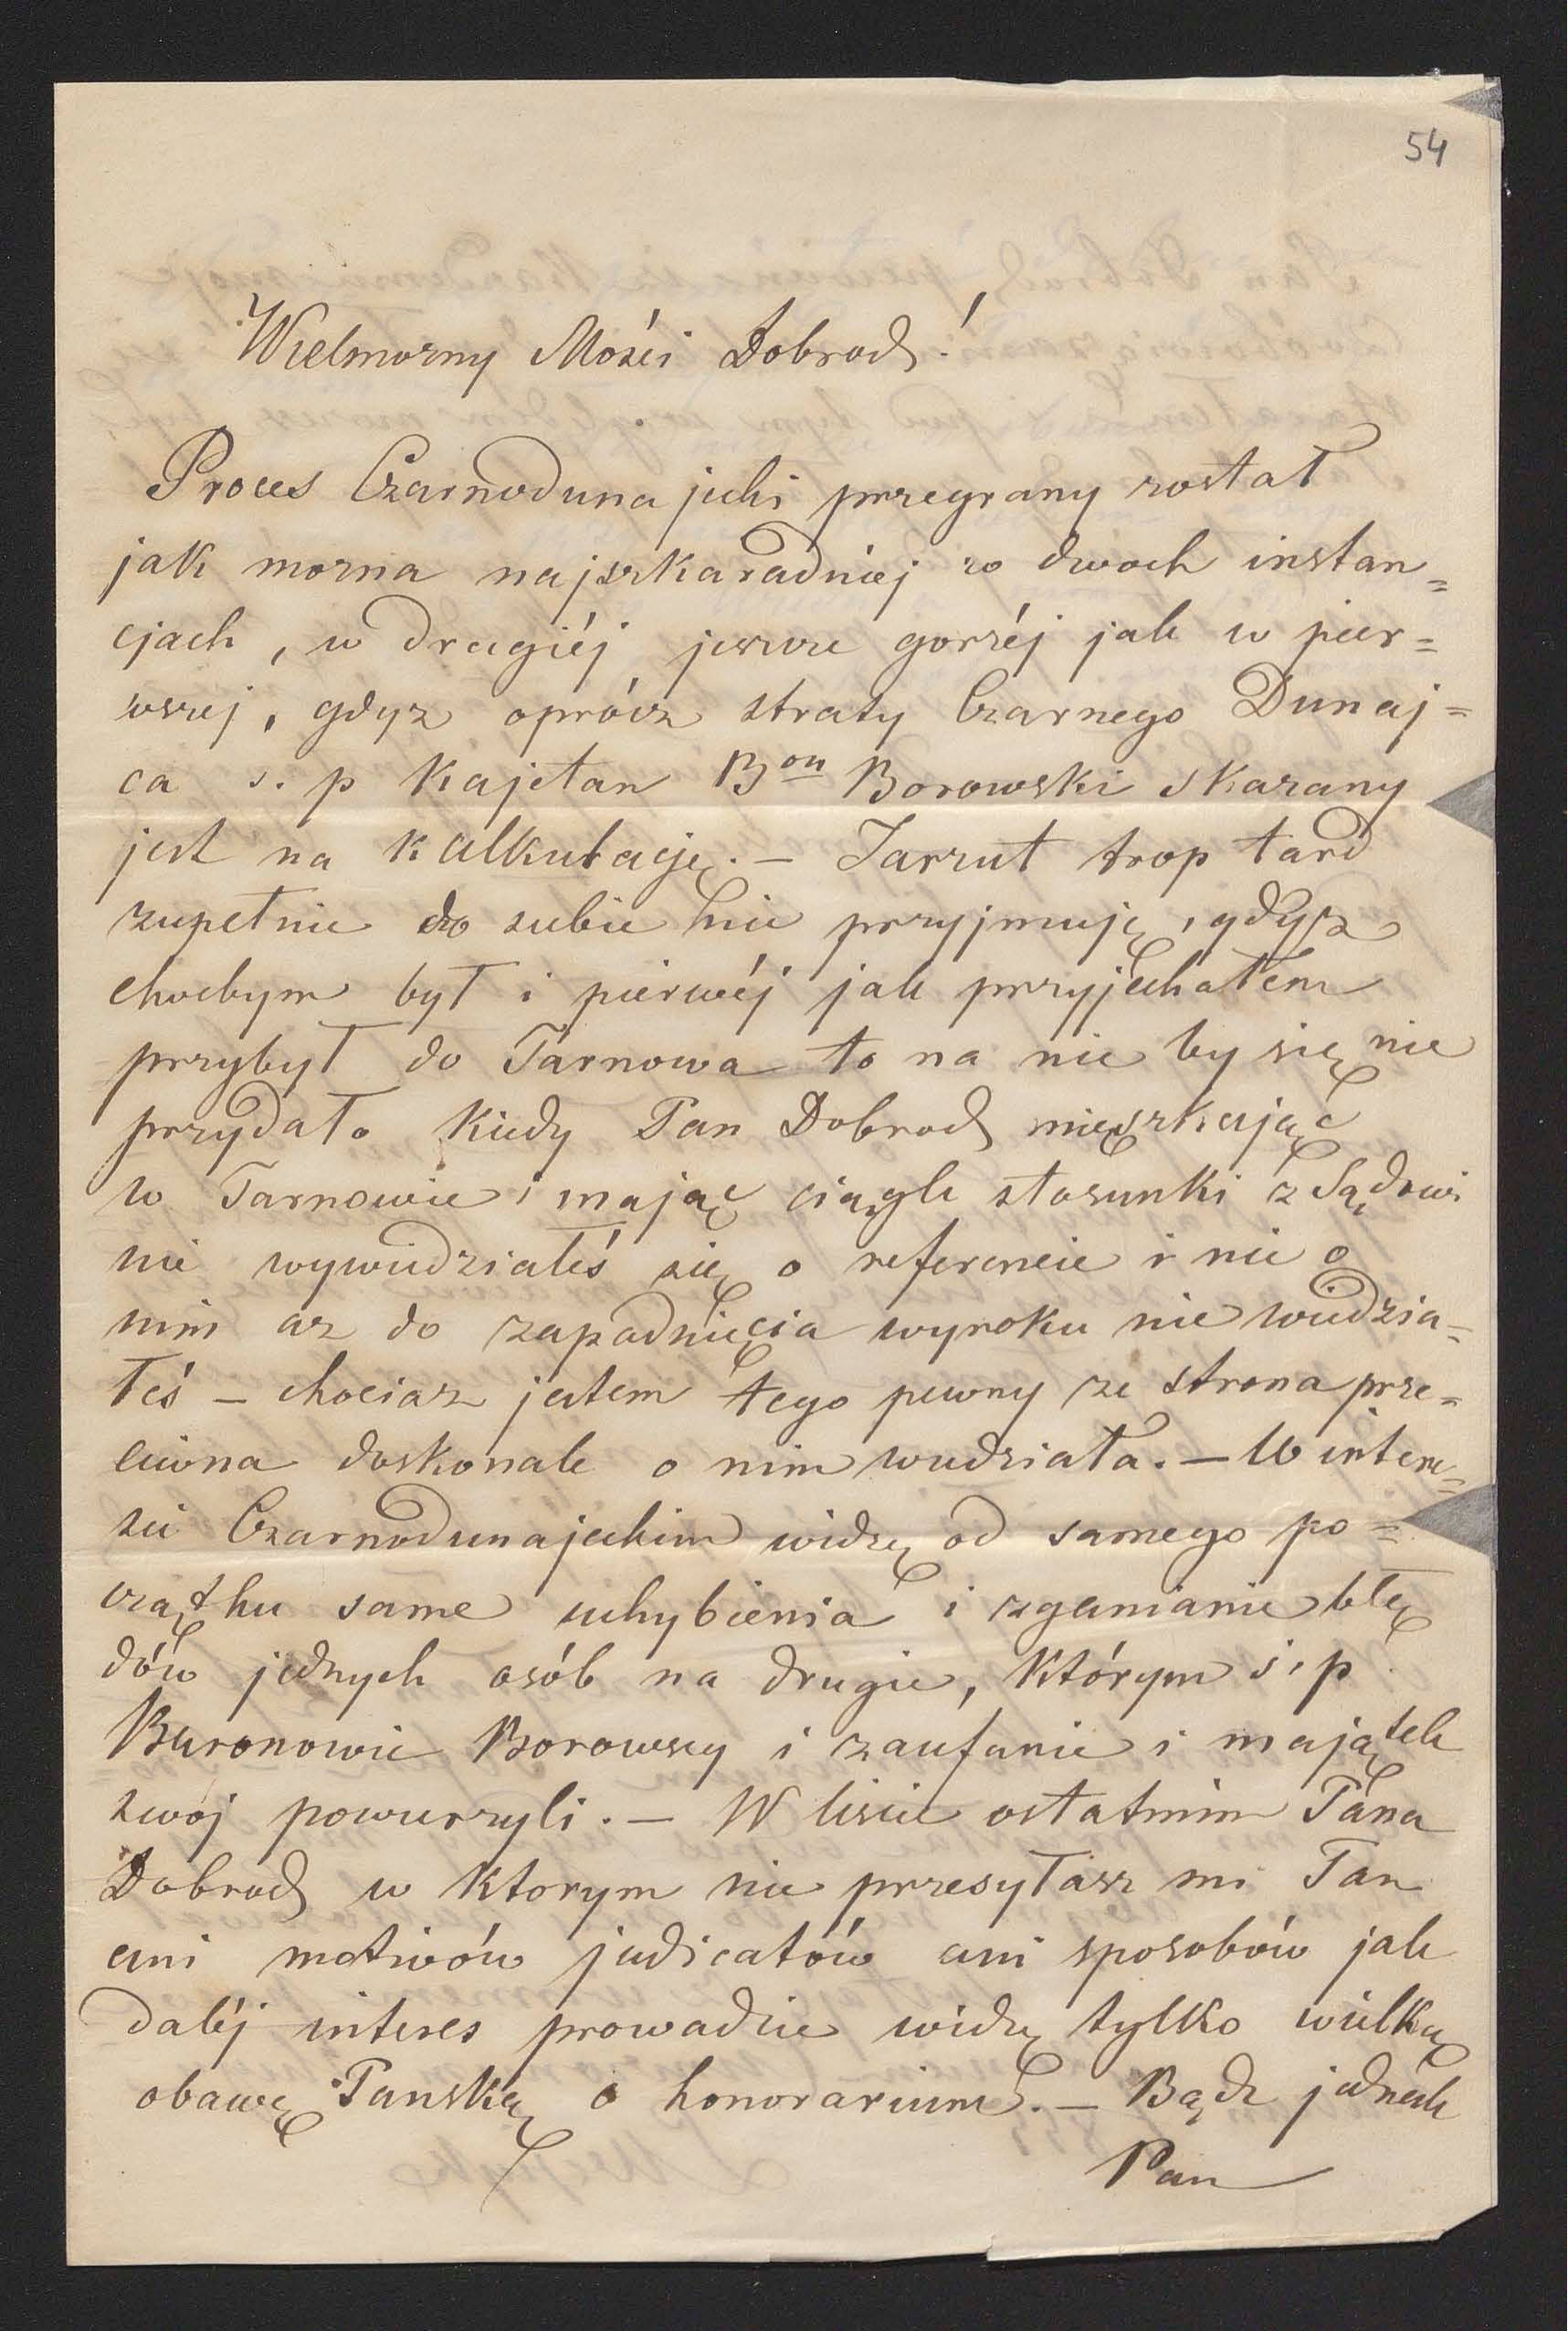 54
Wielmozny Mośći Dobrodz!
Proces Czarnodunajecki przegrany został
jak mozna najszkaradniej w dwoch instan=
cjach, w drugiéj jeszcze gorzéj jak w pier=
wszej, gdyz oprócz straty Czarnego Dunaj=
ca s. p Kajetan Bon Borowski skazany
jest na kalkulację. — Zarzut trop tard
zupełnie do siebie nie przyjmuję, gdyż
choćbym był i pierwéj jak przyjechałem
przybył do Tarnowa to na nic by się nie
przydało kiedy Pan Dobrodz mieszkając
w Tarnowie i mając ciągle stosunki z Sądowi
nie wywiedziałeś się o referencie i nic o
nim az do zapadnięcia wyroku nie wiedzia=
łeś — chociaz jestem tego pewny ze strona prze=
ciwna doskonale o nim wiedziała. — W intere=
sie Czarnodunajeckim widzę od samego po=
czątku same uchybienia i zganianie błę
dów jednych osób na drugie, którym ś. p
Baronowie Borowscy i zaufanie i majątek
swój powierzyli. — W liście ostatnim Pana
Dobrodz w ktorym nie przesyłasz mi Pan
ani motivów judicatów ani sposobów jak
daléj interes prowadzić widzę tylko wielką
obawę Pańską o honorarium. — Bądz jednak
Pan